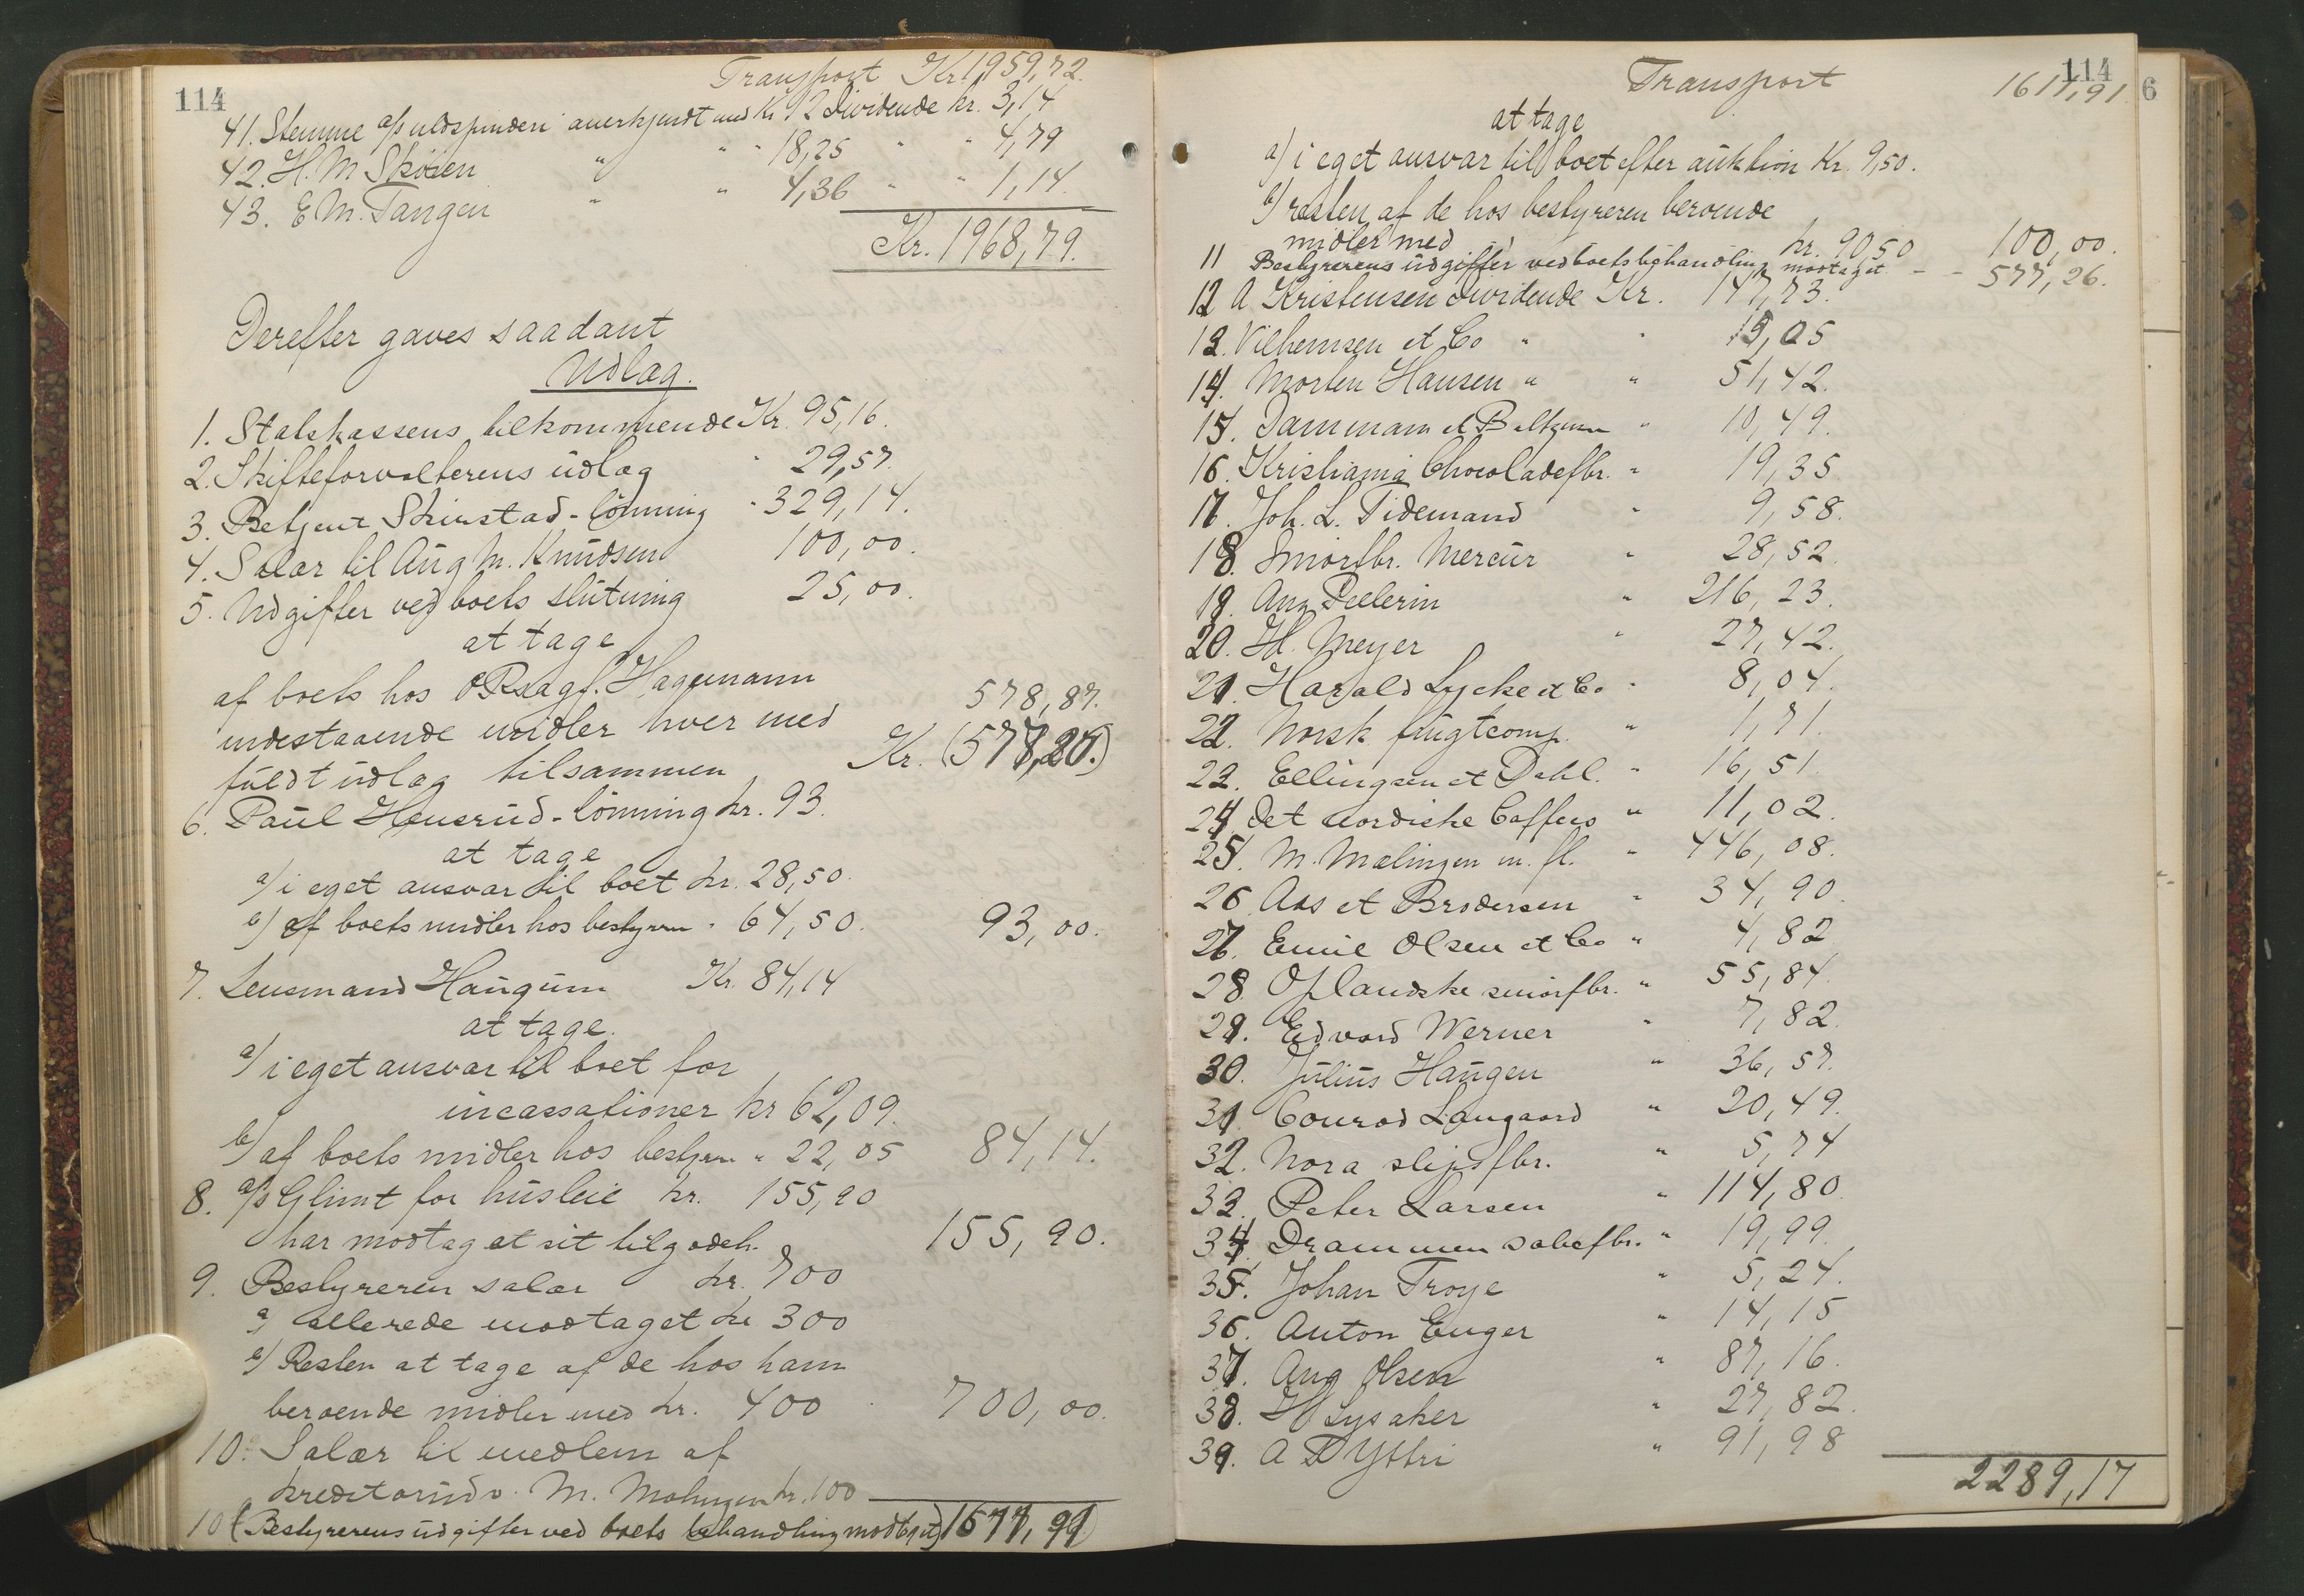 114
Transport Kr. 1959,72.
41. Stemme a/s uldspinderi anerkjendt med Kr 12 Dividende kr. 3,14
42. H. M Skøien " " " 18,25 " " 4,79
43. E M. Tangen " " 4,36 " " 1,14.
Kr. 1968,79.
Derefter gaves saadant
Udlæg.
1. Statskassens tilkommende Kr. 95,16.
2. Skifteforvalterens udlæg " 29,57.
3. Betjent Skinstad - lønning " 329,14.
4. Salær til Aug M. Knudsen 100,00.
5. Udgifter ved boets slutning 25,00.
at tage
af boets hos ORsagf. Hagemann
indestaaende midler hver med 578,87.
fuldt udlæg tilsammen Kr. (577,27.)
6. Paul Hensrud - lønning kr. 93.
at tage
a) i eget ansvar til boet kr. 28,50.
b) af boets midler hos bestyreren " 64,50. 93,00.
7. Lensmand Haugum Kr. 84,14
at tage.
a) i eget ansvar til boet for
incassationer kr 62,09.
b) af boets midler hos bestyreren " 22,05 84,14.
8. a/s Glimt for husleie kr. 155,90
har modtaget sit tilgodeh. 155,90.
9. Bestyreren salær kr. 700
a) allerede modtaget kr 300
b) Resten at tage af de hos ham
beroende midler med kr. 400 700,00.
10. Salær til medlem af
kreditorudv. M. Mælingen kr. 100
10 (Bestyrerens udgifter ved boets behandling modtaget)
114
6
Transport 1611,91
at tage
a) i eget ansvar til boet efter auktion Kr. 9,50.
b) resten af de hos bestyreren beroende
midler med kr. 90,50 100,00.
11 Bestyrerens udgifter ved boets behandling modtaget - - 577,26.
12 A Kristensen Dividende Kr. 147,73.
13. Vilhemsen et Co " " 15,05
14. Morten Hansen " " 51,42.
15. Dammam et Beltzner " 10,49.
16. Kristiania Chocoladefbr. " 19,35
17. Joh. L. Tidemand " 9,58.
18. Smørfbr. Mercur " 28,52.
19. Aug Pellerin " 216,23.
20. H. Meyer " 27,42.
21. Harald Lycke et Co " 8,04.
22. Norsk frugtcomp. " 1,71.
23. Ellingsen et Dehl. " 16,51.
24. Det nordiske Caffeco " 11,02.
25. M. Mælingen m. fl. " 446,08.
26. Aas et Brodersen " 34,90.
27. Emil Olsen et Co " 4,82
28. Oplandske smørfbr. " 55,84.
29. Edvard Werner " 7,82
30. Julius Haugen " 36,57.
31. Conrad Langaard " 20,49.
32. Nora slipsfbr. " 5,74
33. Peter Larsen " 114,80.
34. Drammen sæbefbr. " 19,99.
35. Johan Troye " 5,24.
36. Anton Enger " 14,15
37. Aug Olsen " 87,16.
38. H Lysaker " 27,82.
39. A D Yttri " 91,98
2289,17